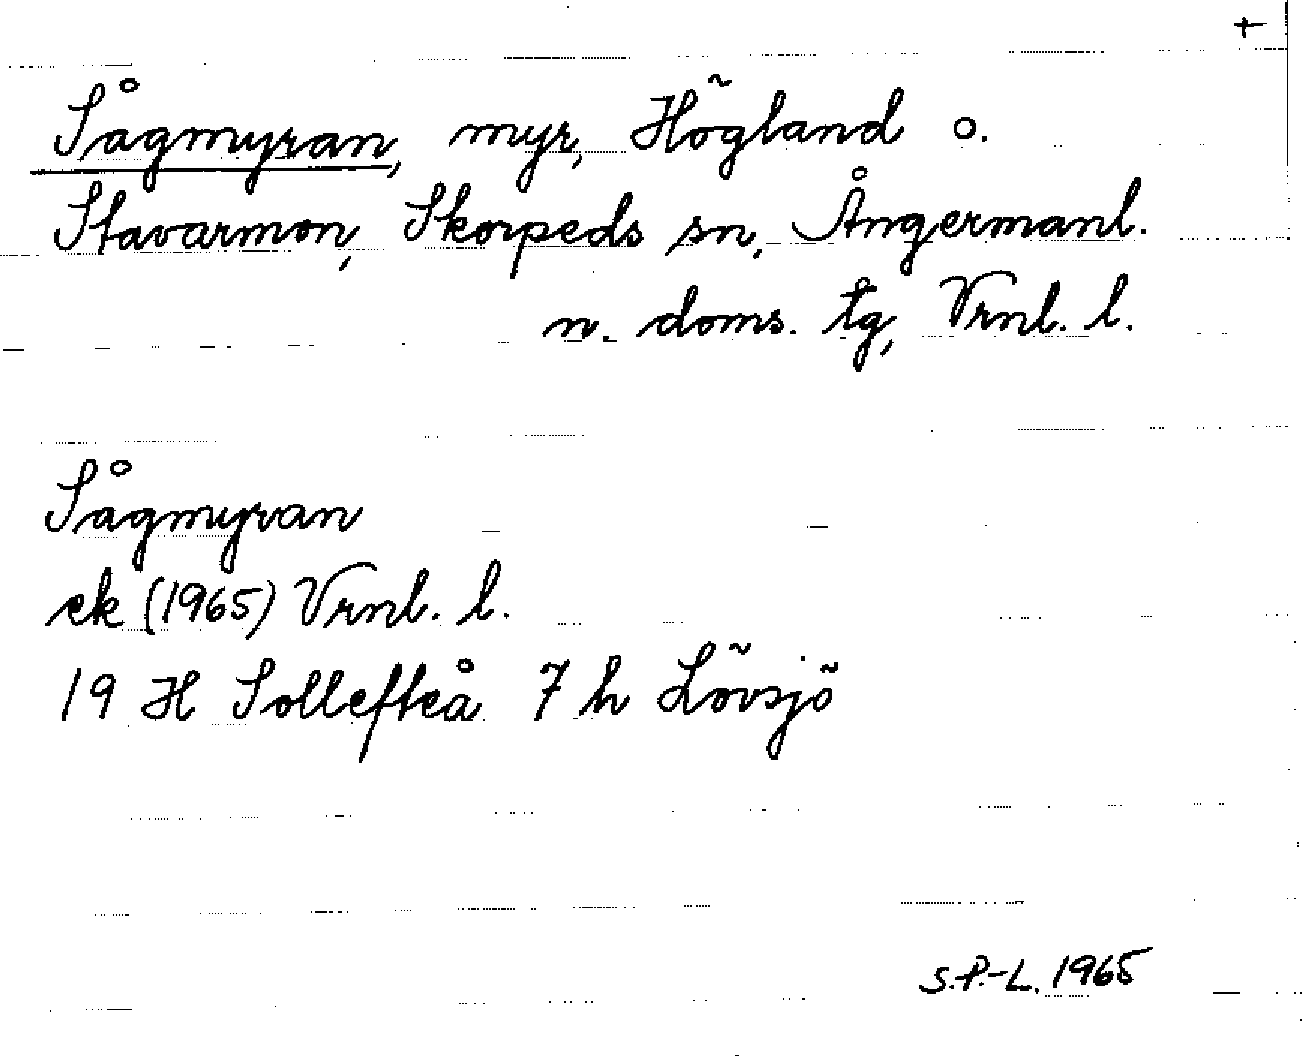 +
Sågmyran, myr, Högland o.
Stavarmon, Skorpeds sn, Ångermanl.
n. doms. tg, Vrnl. l.
Sågmyran
ek (1965) Vrnl. l.
19 H Sollefteå 7 h Lövsjö
S.P.-L. 1965